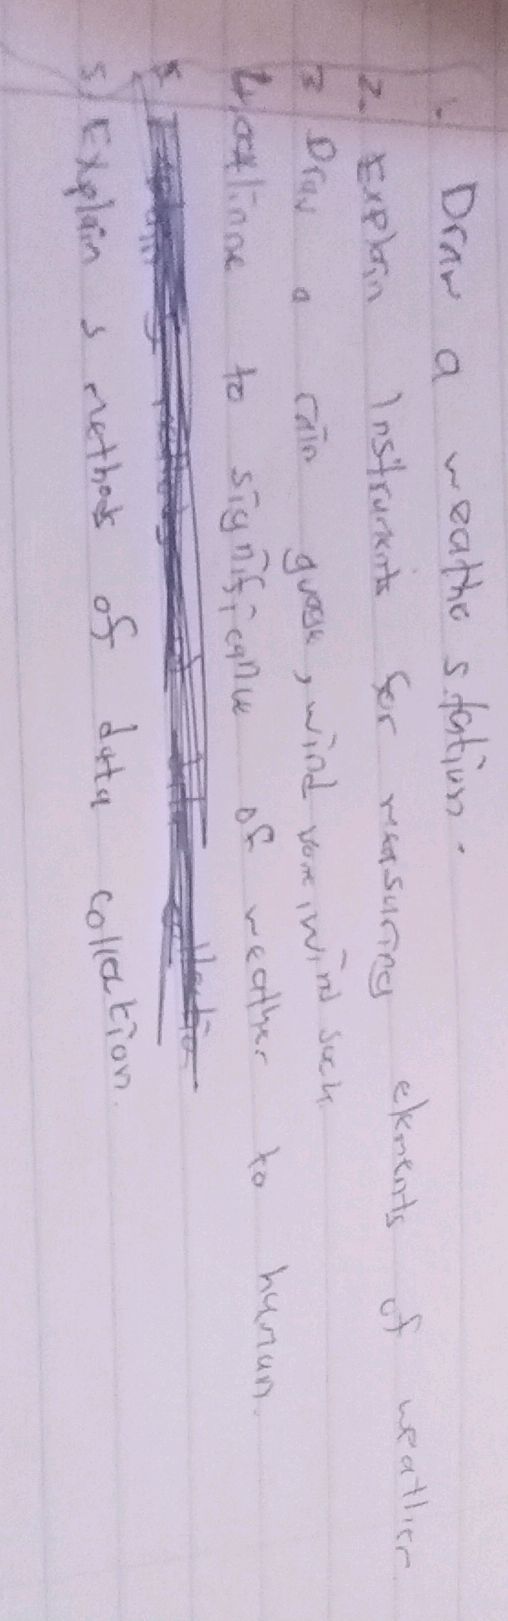 1. Draw a weathe station.
2. Explain Instruments for measuring elements of weather
3 Draw a rain guage, wind vane, wind sock
4, outlinne to significance of weather to human.
5
5) Explain 5 methods of data collection.